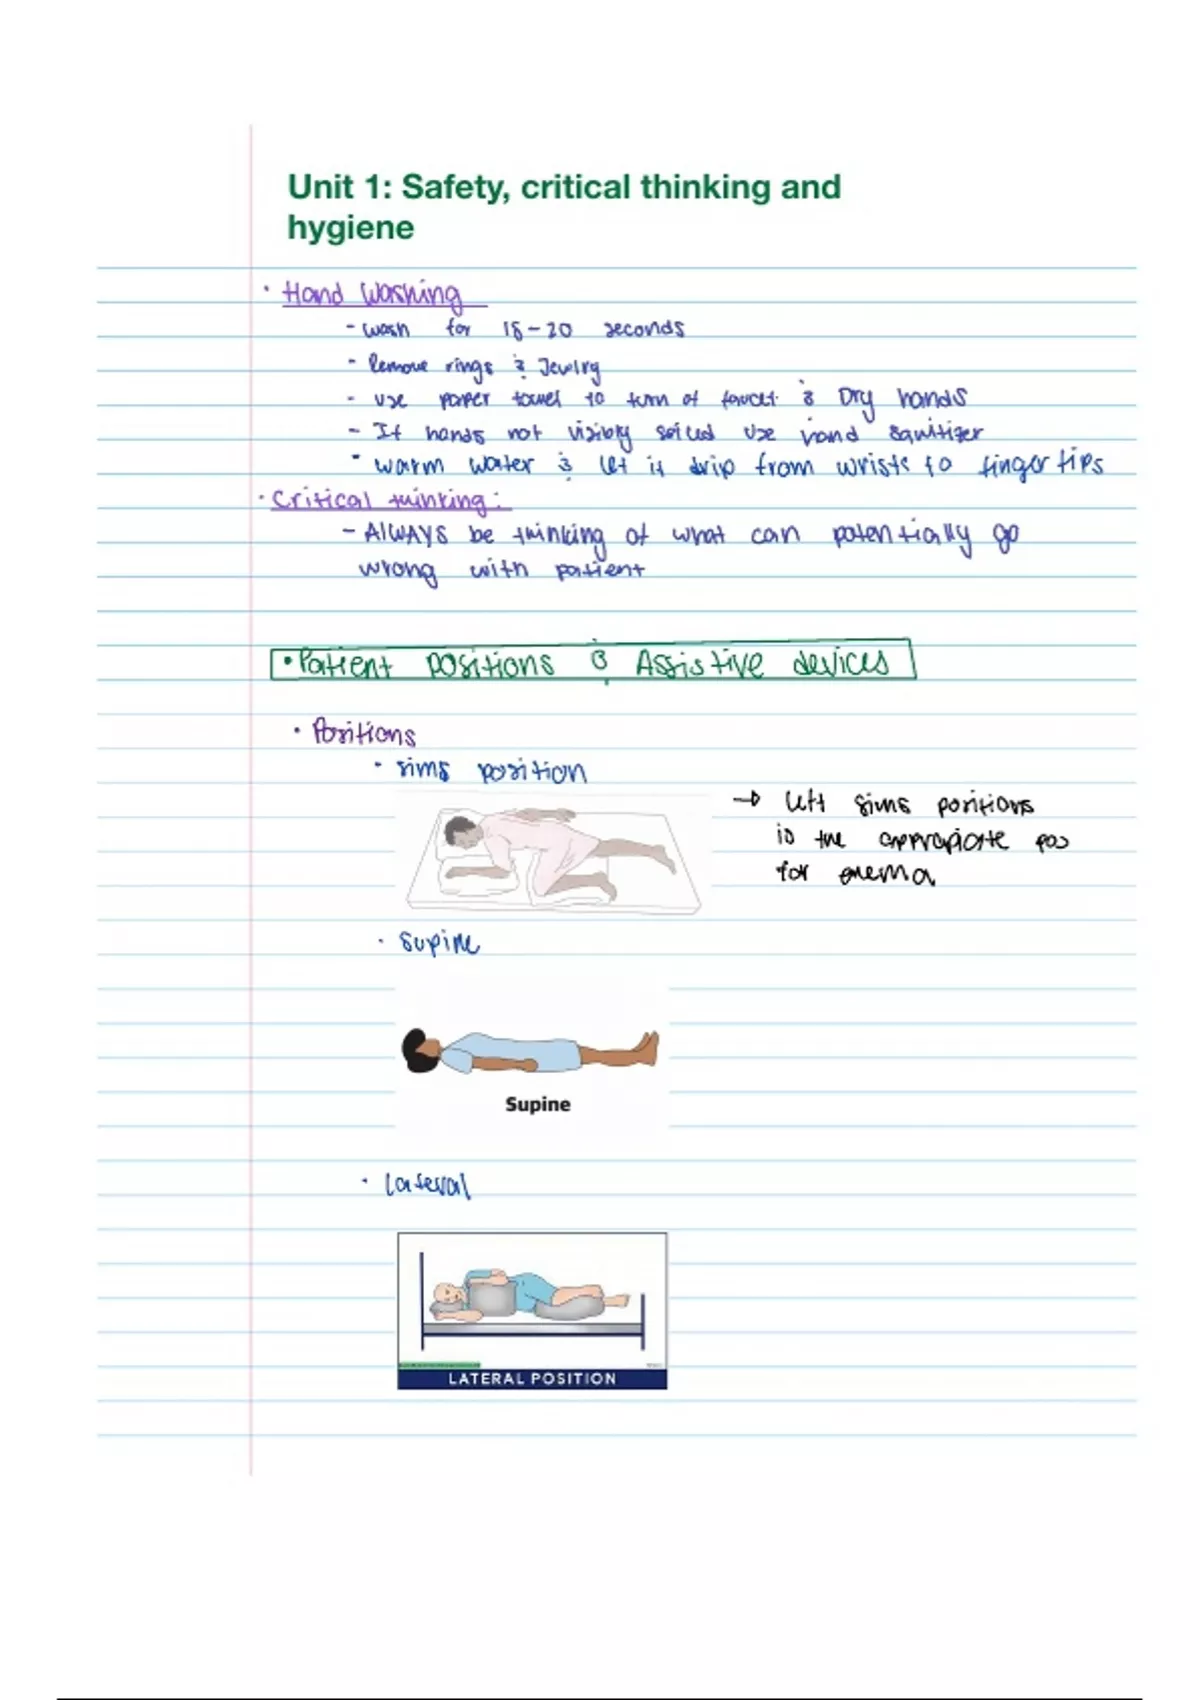 Unit 1: Safety, critical thinking and
hygiene
• Hand Washing
- wash for 15-20 seconds
- Remove rings & Jewlry
- use paper towel to turn of faucet & Dry hands
- If hands not visibly soiled use hand sanitizer
• warm water & let it drip from wrists to finger tips
• Critical thinking:
- AlWAYS be thinking of what can potentially go
wrong with patient
• Patient positions & Assistive devices
• Positions
• sims position
→ left sims positions
is the appropriate pos
for enema
• supine
Supine
• lateral
LATERAL POSITION